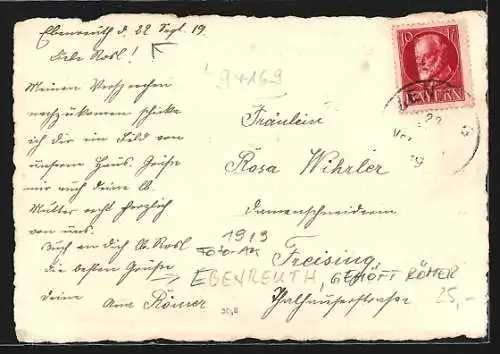 Ebenreuth d. 22 Sept. 19.
Liebe Rosl!
Meinem Versprechen
nachzukommen schicke
ich dir ein Bild von
unserem Haus. Grüße
mir auch deine lb.
Mutter recht herzlich
von uns.
Auch an dich lb. Rosl
die besten Grüße
deine Anna Römer
94169
10
BAYERN
22
Fräulein
Rosa Wihrler
Damenschneiderin
Freising,
Thalhauserstraße
1919
Foto-AK
EBENREUTH, GEHÖFT RÖMER
25,-